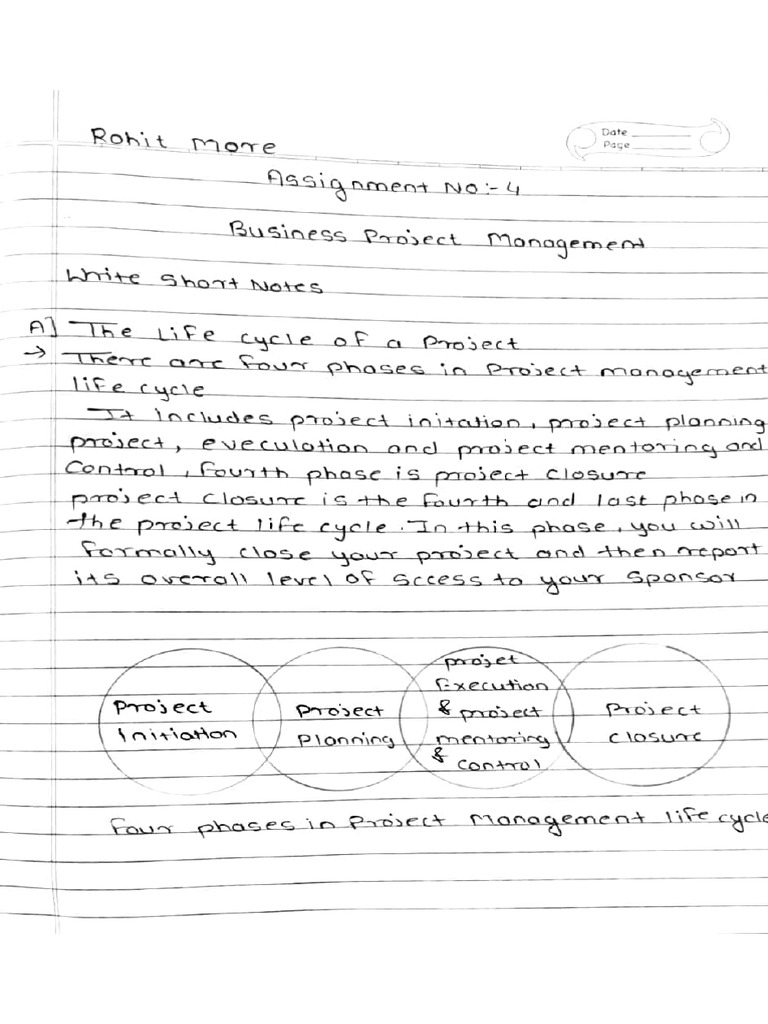 Rohit More
Date
Page
Assignment No:- 4
Business Project Management
Write Short Notes
A] The Life cycle of a Project
→ There are four phases in Project management
life cycle
It includes project initation, project planning
project, eveculation and project mentoring and
Control, fourth phase is project closure
project closure is the fourth and last phase in
the project life cycle. In this phase, you will
formally close your project and then report
its overall level of sccess to your sponsor
Project
Initiation
Project
Planning
projet
Execution
& project
mentoring
& control
Project
closure
Four phases in Project Management life cycle